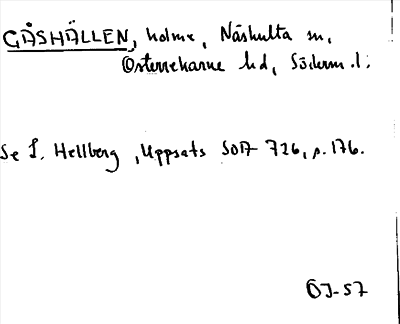 GÅSHÄLLEN, holme, Näshulta sn,
Österrekarne hd, Söderm.l:
Se L. Hellberg, Uppsats SOA 726, s. 176.
ÖJ-57